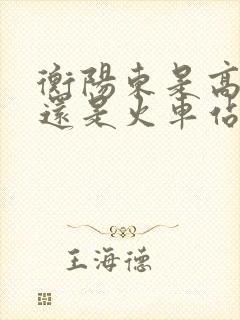 衡陽東是高
還是火車佔
王海德